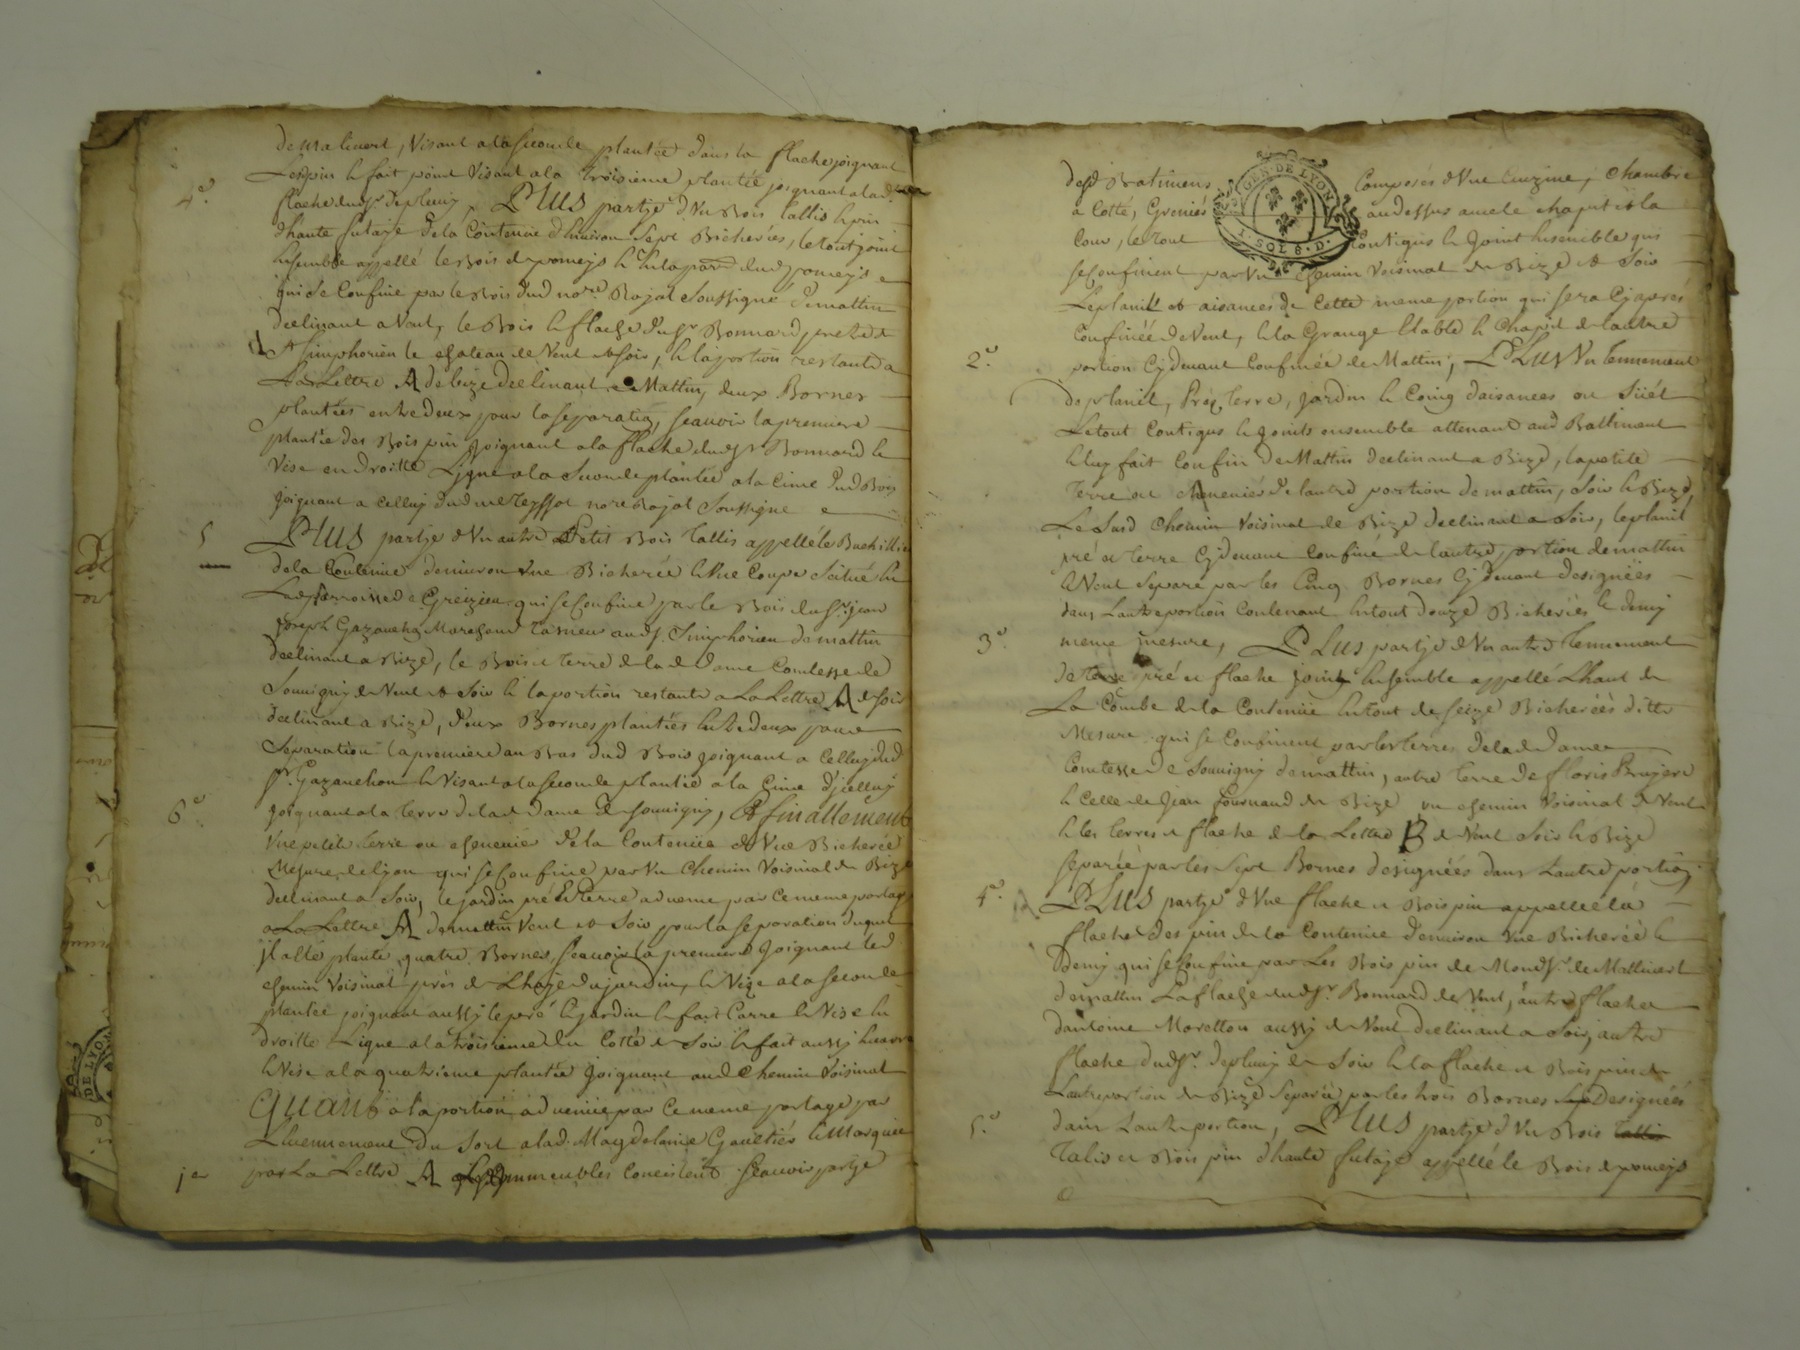 de Malivert, Visant a la seconde plantée dans la flache joignant
Lespin & fait point Visant a la troisieme plantée joignant a lad.
4° flache dud sr depluny, PLUS partye d'Vn Bois tallis & pin
dhaute futaye de la Contenüe d'Environ Sept Bicherées, le tout joint
Ensemble appellé le Bois de pomeys
qui se Confine par le Bois dud nore Royal Soussigné de mattin
declinant a Vent, le Bois & flache dud sr Bonnard
St simphorien le chateau de Vent & soir, & la portion restante a
La Lettre A de bize declinant a Mattin, deux Bornes
plantées entre deux pour la separation, scauoir la premiere
plantée des Bois pin joignant a la flache dud sr Bonnard &
Vise en droitte Ligne a la Seconde plantée a la Cime dud Bois
joignant a celluy dud me Teyssot nore Royal Soussigné
5 PLUS partye d'Vn autre Petit Bois Tallis appellé le Buchillier
de la Contenüe denuiron Vne Bicherée & Vne Coupe Scitué en
La parroisse de Greizieu qui se Confine par le Bois du sr jean
joseph Gazanchon Marchand Taneur aud St Simphorien de mattin
declinant a Bize, le Bois & terre de lad. dame Comtesse de
Souuigny de Vent & Soir & la portion restante a La Lettre A de soir
declinant a Bize, deux Bornes plantées Entre deux pour
Separation la premiere au Bas dud Bois joignant a Celluy dud
sr Gazanchon & Visant a la seconde plantée a la Cime d'jcelluy
6° joignant a la terre de lad. dame de Souuigny, Et finallement
Vne petite terre ou cheneuie de la Contenüe d'Vne Bicherée
Mesure de lyon qui se Confine par Vn Chemin Voisinal de Bize
declinant a Soir, le jardin pré & terre aduenue par Ce meme partage
a La Lettre A de mattin Vent & Soir pour la separation duquel
jl a été planté quatre Bornes, scauoir la premiere joignant led
chemin Voisinal pres de L'haye du jardin, & Vize a la seconde
plantée joignant aussy le pré & jardin & fait Carre & Vise En
droitte Ligne a la troisieme du Cotté de Soir & fait aussy Carre
& Vise a la quatrieme plantée joignant aud Chemin Voisinal
QUANT a la portion aduenüe par Ce meme partage par
L'Euenement du Sort a lad. Magdelaine Gaultier & Marquée
1er par La Lettre A Les jmmeubles Consistent scauoir partye
desd Batimens Composés d'Vne Cuizine, Chambre
a Cotté, Greniés au dessus auec le chapit & la
Cour, le Tout Contigus & Joint Ensemble qui
se Confinent par Vn Chemin Voisinal de Bize & Soir
Le planil & aisances de Cette meme portion qui sera Cy apres
Confinée de Vent, & la Grange Etable & Chapit de lautre
2° portion Cy deuant Confinée de Mattin, PLUS Vn Tennement
de planil, Pré, terre, jardin & Coing daisances ou Süel
Le tout Contigus & Joints ensemble attenant aud Battiment
& luy fait Confin de Mattin declinant a Bize, la petite
terre ou cheneuiés de lautre portion de mattin, Soir & Bize,
Le Susd Chemin Voisinal de Bize declinant a Soir, le planil
pré & terre Cy deuant Confiné de lautre portion de mattin
& Vent Separé par les Cinq Bornes Cy deuant designées
dans Lautre portion Contenant En tout douze Bicherées & demy
3° meme mesure, PLUS partye d'Vn autre tennement
de terre pré & flache joint Ensemble appellé Lhaut de
La Combe de la Contenüe En tout de seize Bicherées ditte
Mesure qui se Confinent par les terres de lad. dame
Comtesse de Souuigny de mattin, autre terre de floris Bruyere
& Celle de Jean fournaud de Bize, vn chemin Voisinal de Vent
& les terres & flache de la Lettre B de Vent Soir & Bize
separée par les sept Bornes designées dans Lautre portion
4° PLUS partye d'Vne flache & Bois pin appellée la
flache des pin de la Contenüe denuiron Vne Bicherée &
Demy qui se Confine par Les Bois pin de Mond sr de Malliuert
de mattin La flache dud sr Bonnard de Vent, autre flache
dantoine Moretton aussy de Vent declinant a Soir, autre
flache dud sr depluny de Soir & la flache & Bois pin de
Lautre portion de Bize Separée par les trois Bornes Designées
5° dans Lautre portion, PLUS partye d'Vn Bois tallis
Talis & Bois pin dhaute futaye appellé le Bois de pomeys
GEN. DE LYON
1. SOL 8. D.
DE LYON